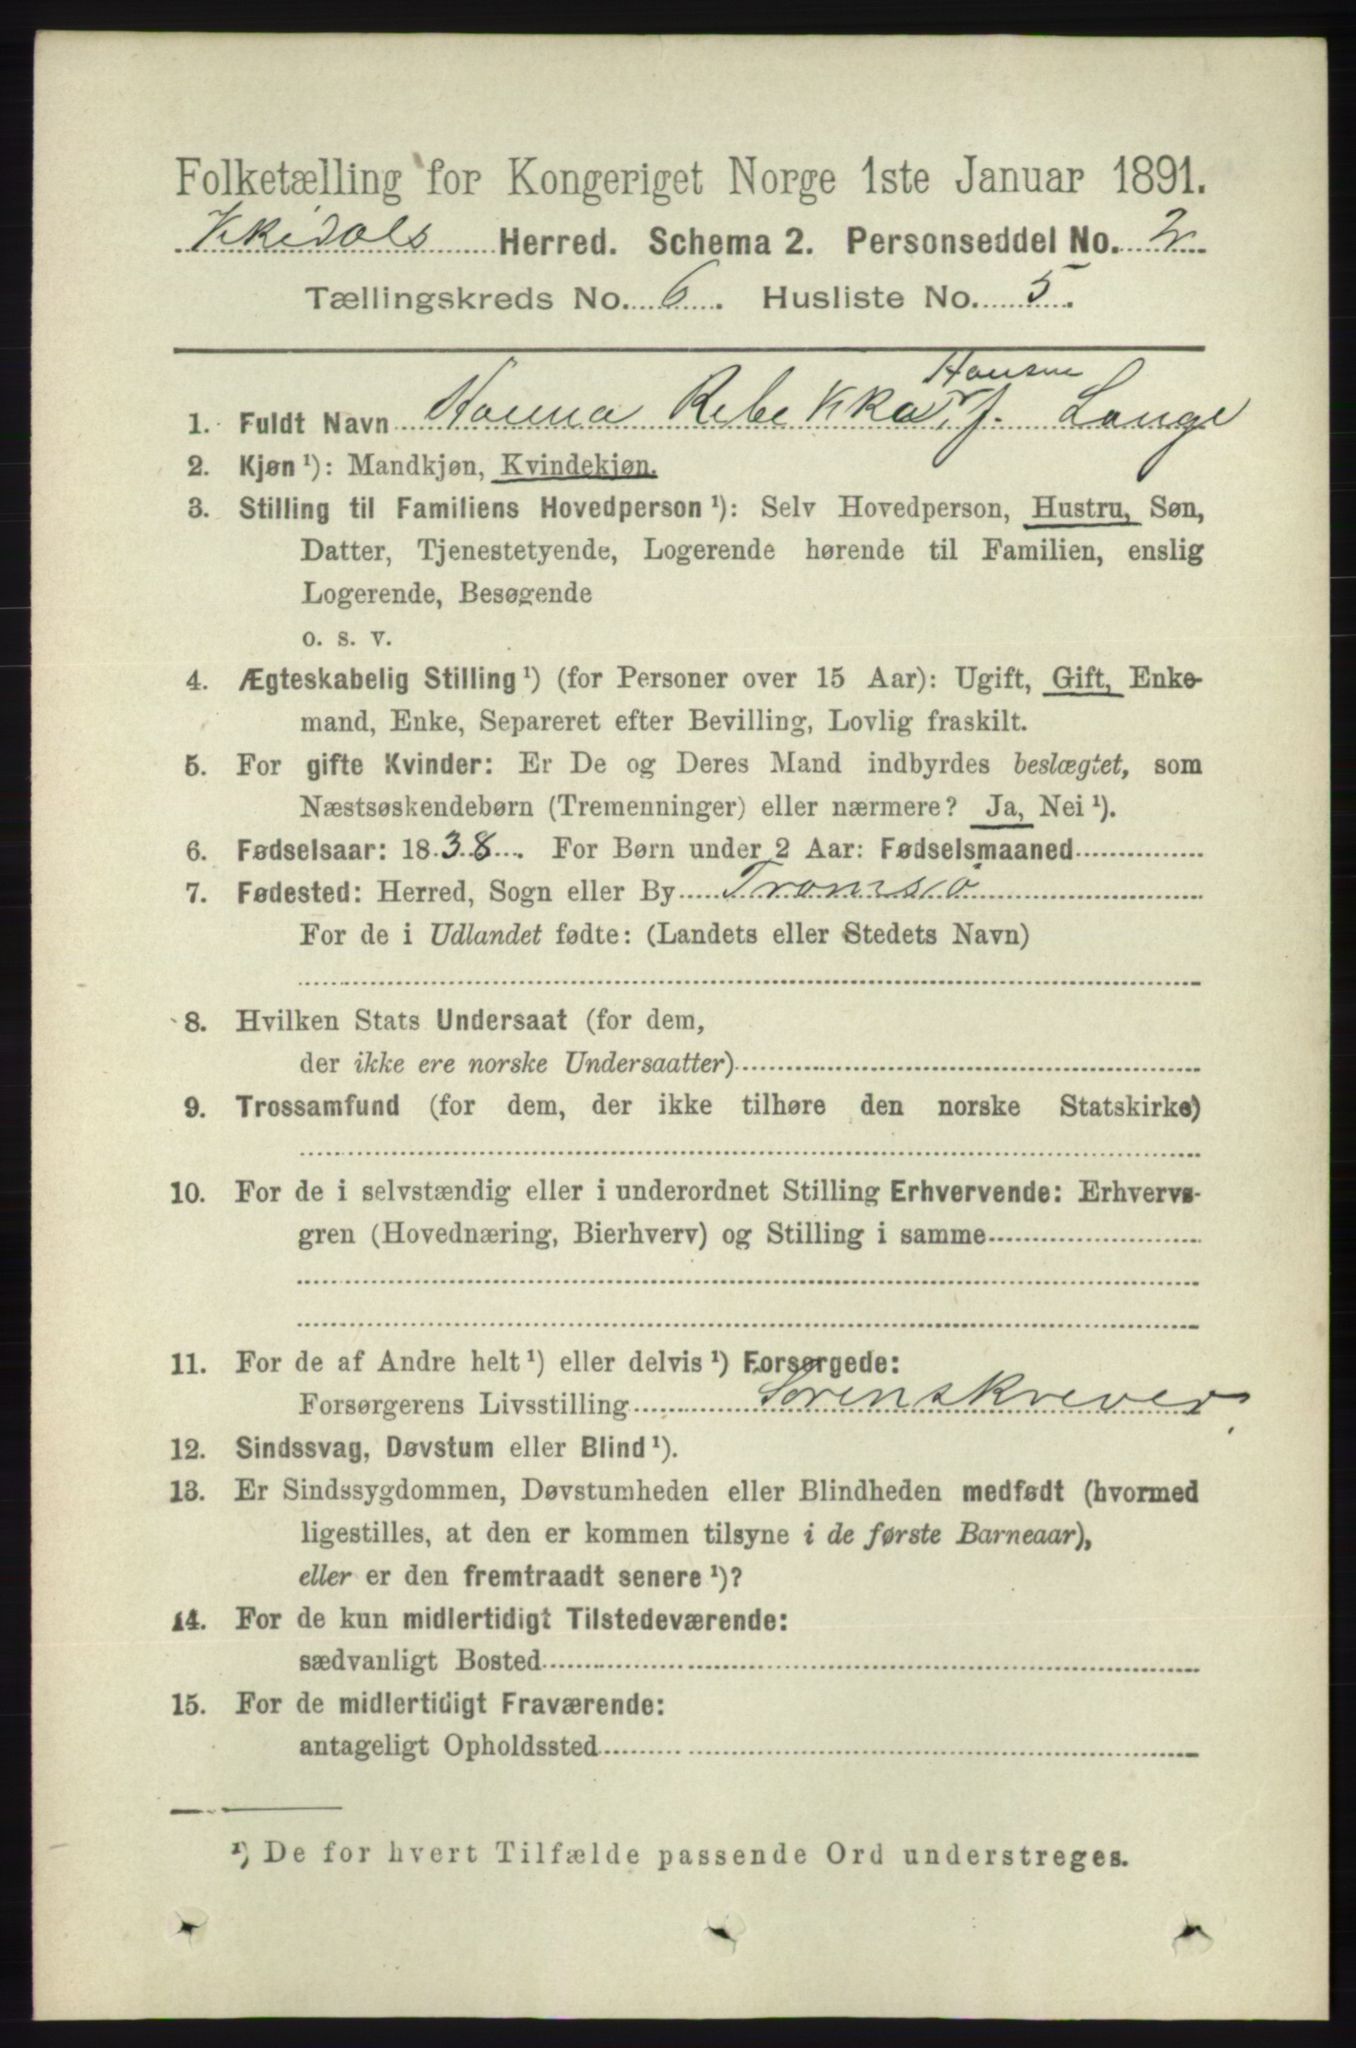 Folketælling for Kongeriget Norge 1ste Januar 1891.
Vikedals Herred. Schema 2. Personseddel No. 2
Tællingskreds No. 6. Husliste No. 5.
Hansen
1. Fuldt Navn Hanna Rebekka f. Lange
2. Kjøn ¹): Mandkjøn, Kvindekjøn.
3. Stilling til Familiens Hovedperson ¹): Selv Hovedperson, Hustru, Søn,
Datter, Tjenestetyende, Logerende hørende til Familien, enslig
Logerende, Besøgende
o. s. v.
4. Ægteskabelig Stilling ¹) (for Personer over 15 Aar): Ugift, Gift, Enke-
mand, Enke, Separeret efter Bevilling, Lovlig fraskilt.
5. For gifte Kvinder: Er De og Deres Mand indbyrdes beslægtet, som
Næstsøskendebørn (Tremenninger) eller nærmere? Ja, Nei ¹).
6. Fødselsaar: 1838. For Børn under 2 Aar: Fødselsmaaned
7. Fødested: Herred, Sogn eller By Tromsø
For de i Udlandet fødte: (Landets eller Stedets Navn)
8. Hvilken Stats Undersaat (for dem,
der ikke ere norske Undersaatter)
9. Trossamfund (for dem, der ikke tilhøre den norske Statskirke)
10. For de i selvstændig eller i underordnet Stilling Erhvervende: Erhvervs-
gren (Hovednæring, Bierhverv) og Stilling i samme
11. For de af Andre helt ¹) eller delvis ¹) Forsørgede:
Forsørgerens Livsstilling Sorenskriver.
12. Sindssvag, Døvstum eller Blind ¹).
13. Er Sindssygdommen, Døvstumheden eller Blindheden medfødt (hvormed
ligestilles, at den er kommen tilsyne i de første Barneaar),
eller er den fremtraadt senere ¹)?
14. For de kun midlertidigt Tilstedeværende:
sædvanligt Bosted
15. For de midlertidigt Fraværende:
antageligt Opholdssted
¹) De for hvert Tilfælde passende Ord understreges.